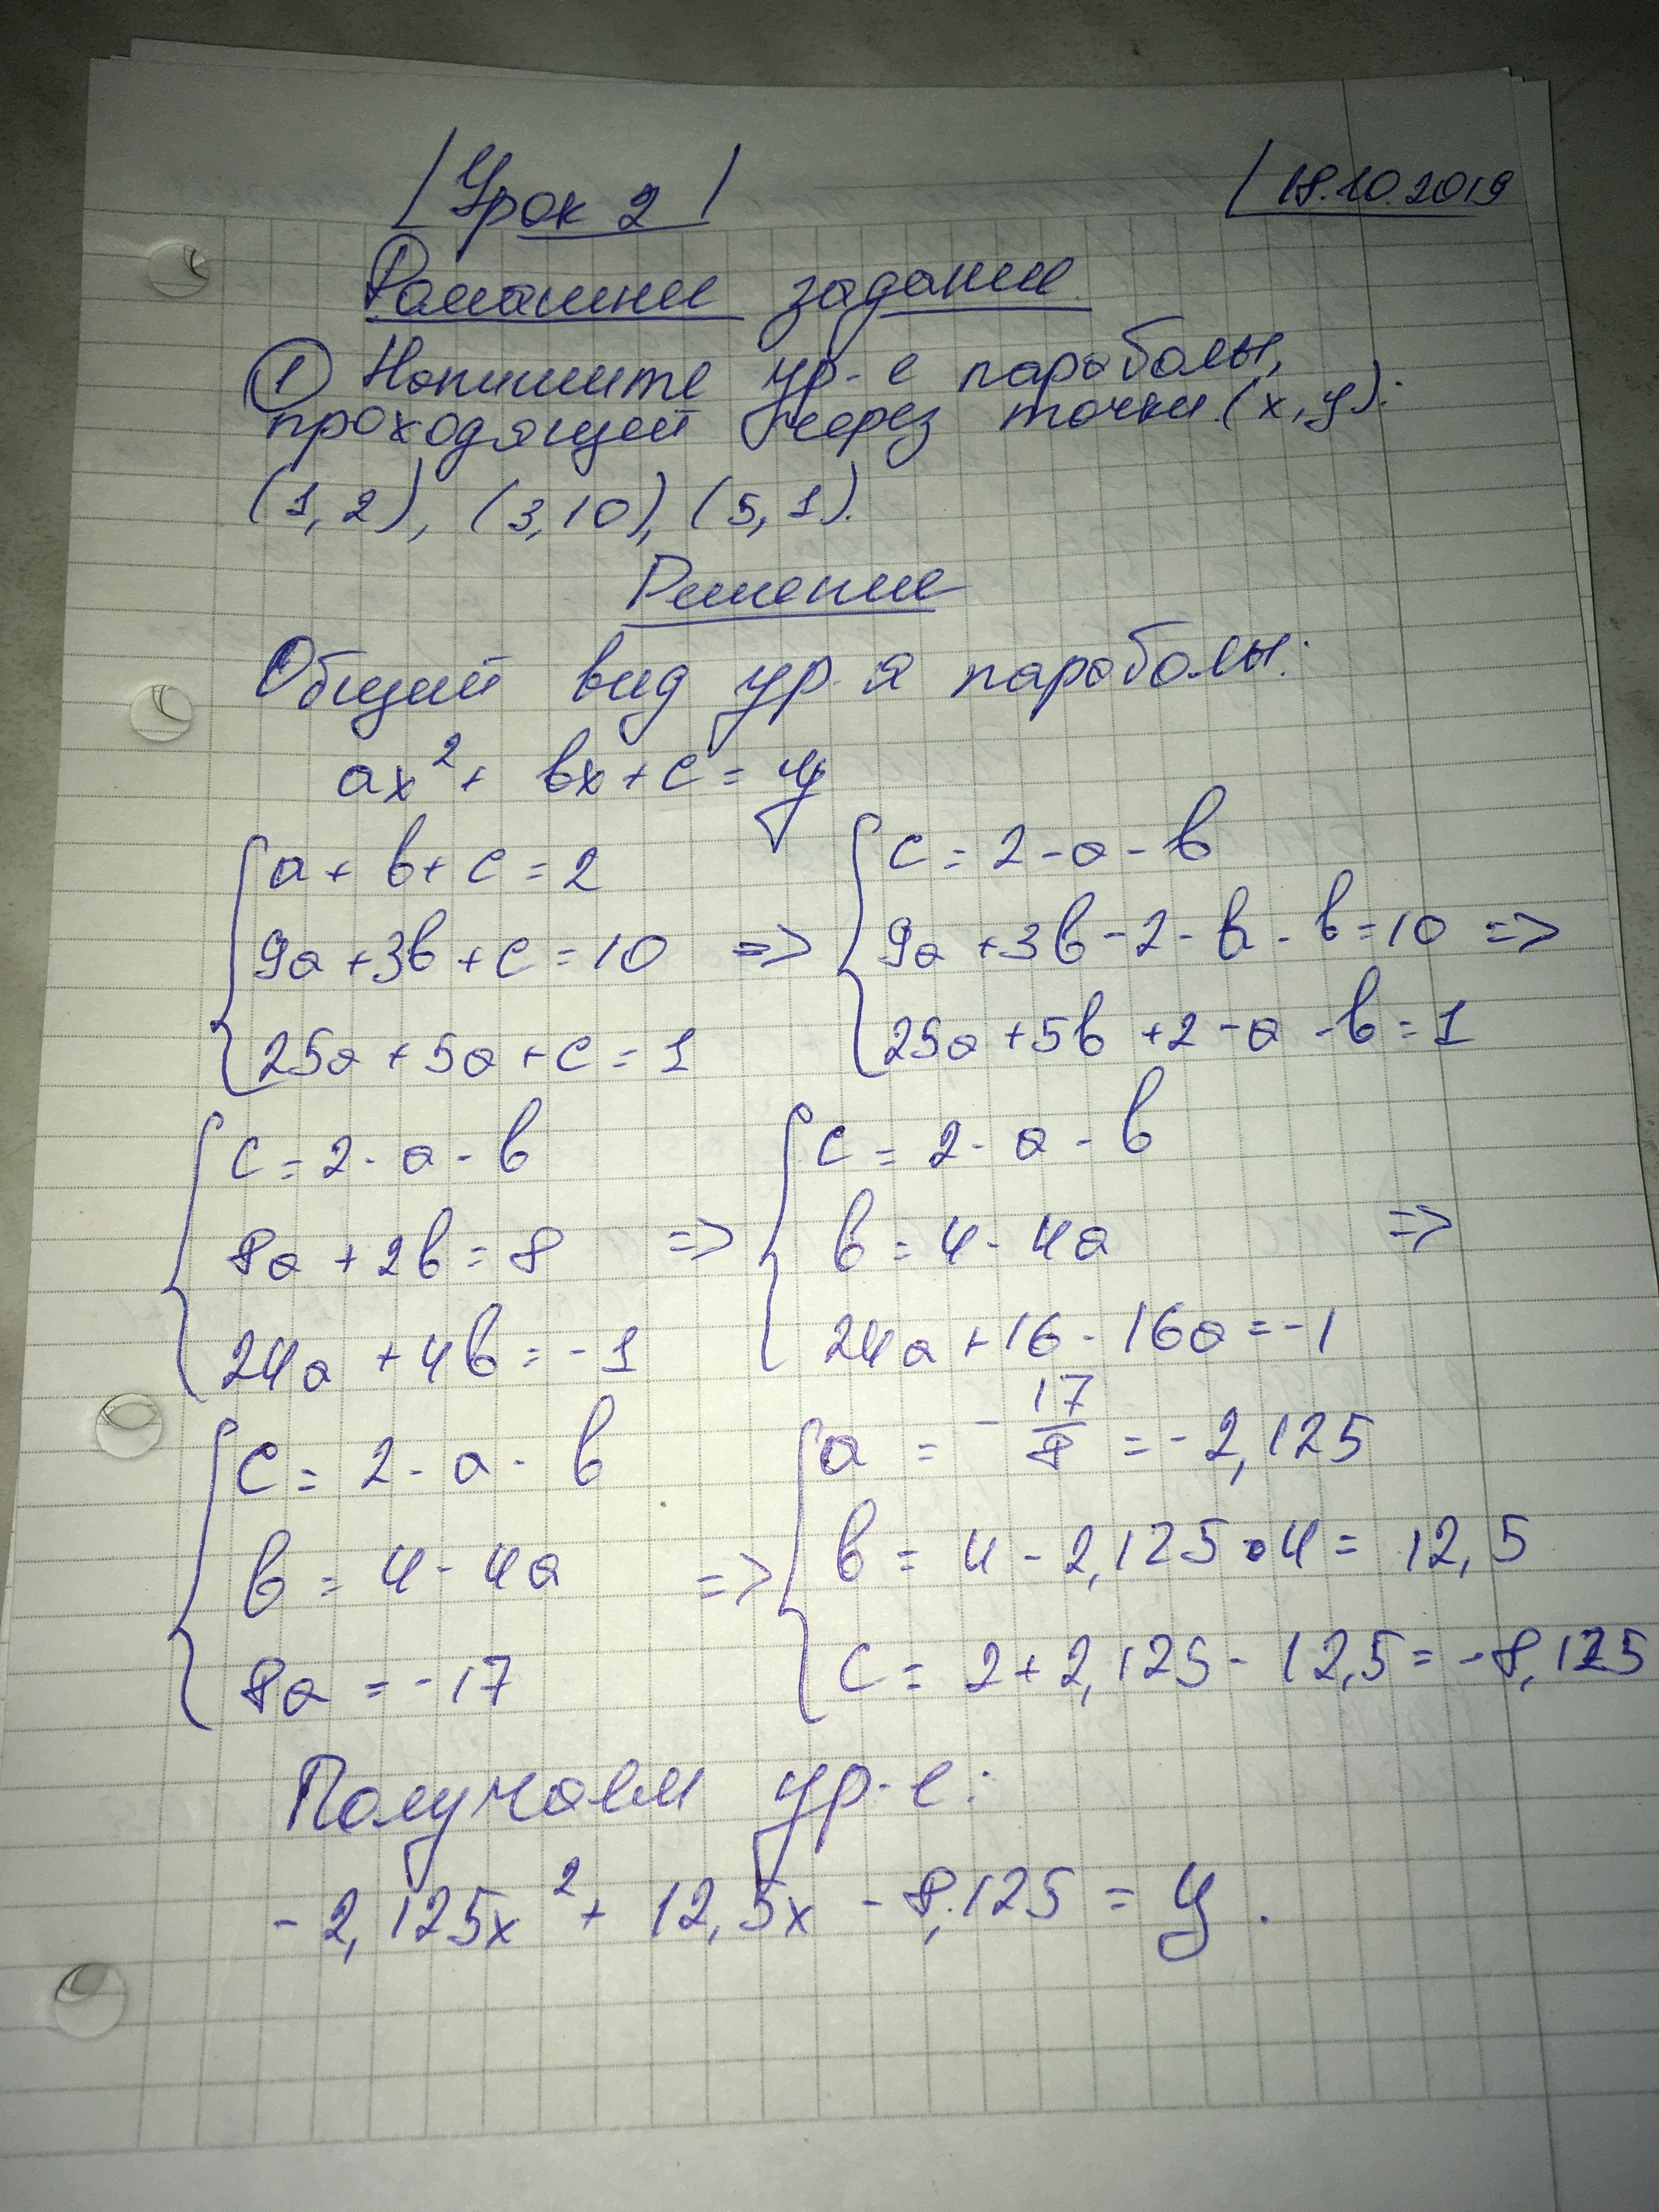 Урок 2
18.10.2019
Домашнее задание
① Напишите ур-е параболы,
проходящей через точки (x, y):
(1, 2), (3, 10), (5, 1).
Решение
Общий вид ур-я параболы:
ax² + bx + c = y
a + b + c = 2
9a + 3b + c = 10 =>
25a + 5a + c = 1
c = 2 - a - b
9a + 3b - 2 - a - b = 10 =>
25a + 5b + 2 - a - b = 1
c = 2 - a - b
8a + 2b = 8 =>
24a + 4b = -1
c = 2 - a - b
b = 4 - 4a =>
24a + 16 - 16a = -1
c = 2 - a - b
b = 4 - 4a =>
8a = -17
a = -17/8 = -2,125
b = 4 - 2,125 • 4 = 12,5
c = 2 + 2,125 - 12,5 = -8,125
Получаем ур-е:
-2,125x² + 12,5x - 8,125 = y.